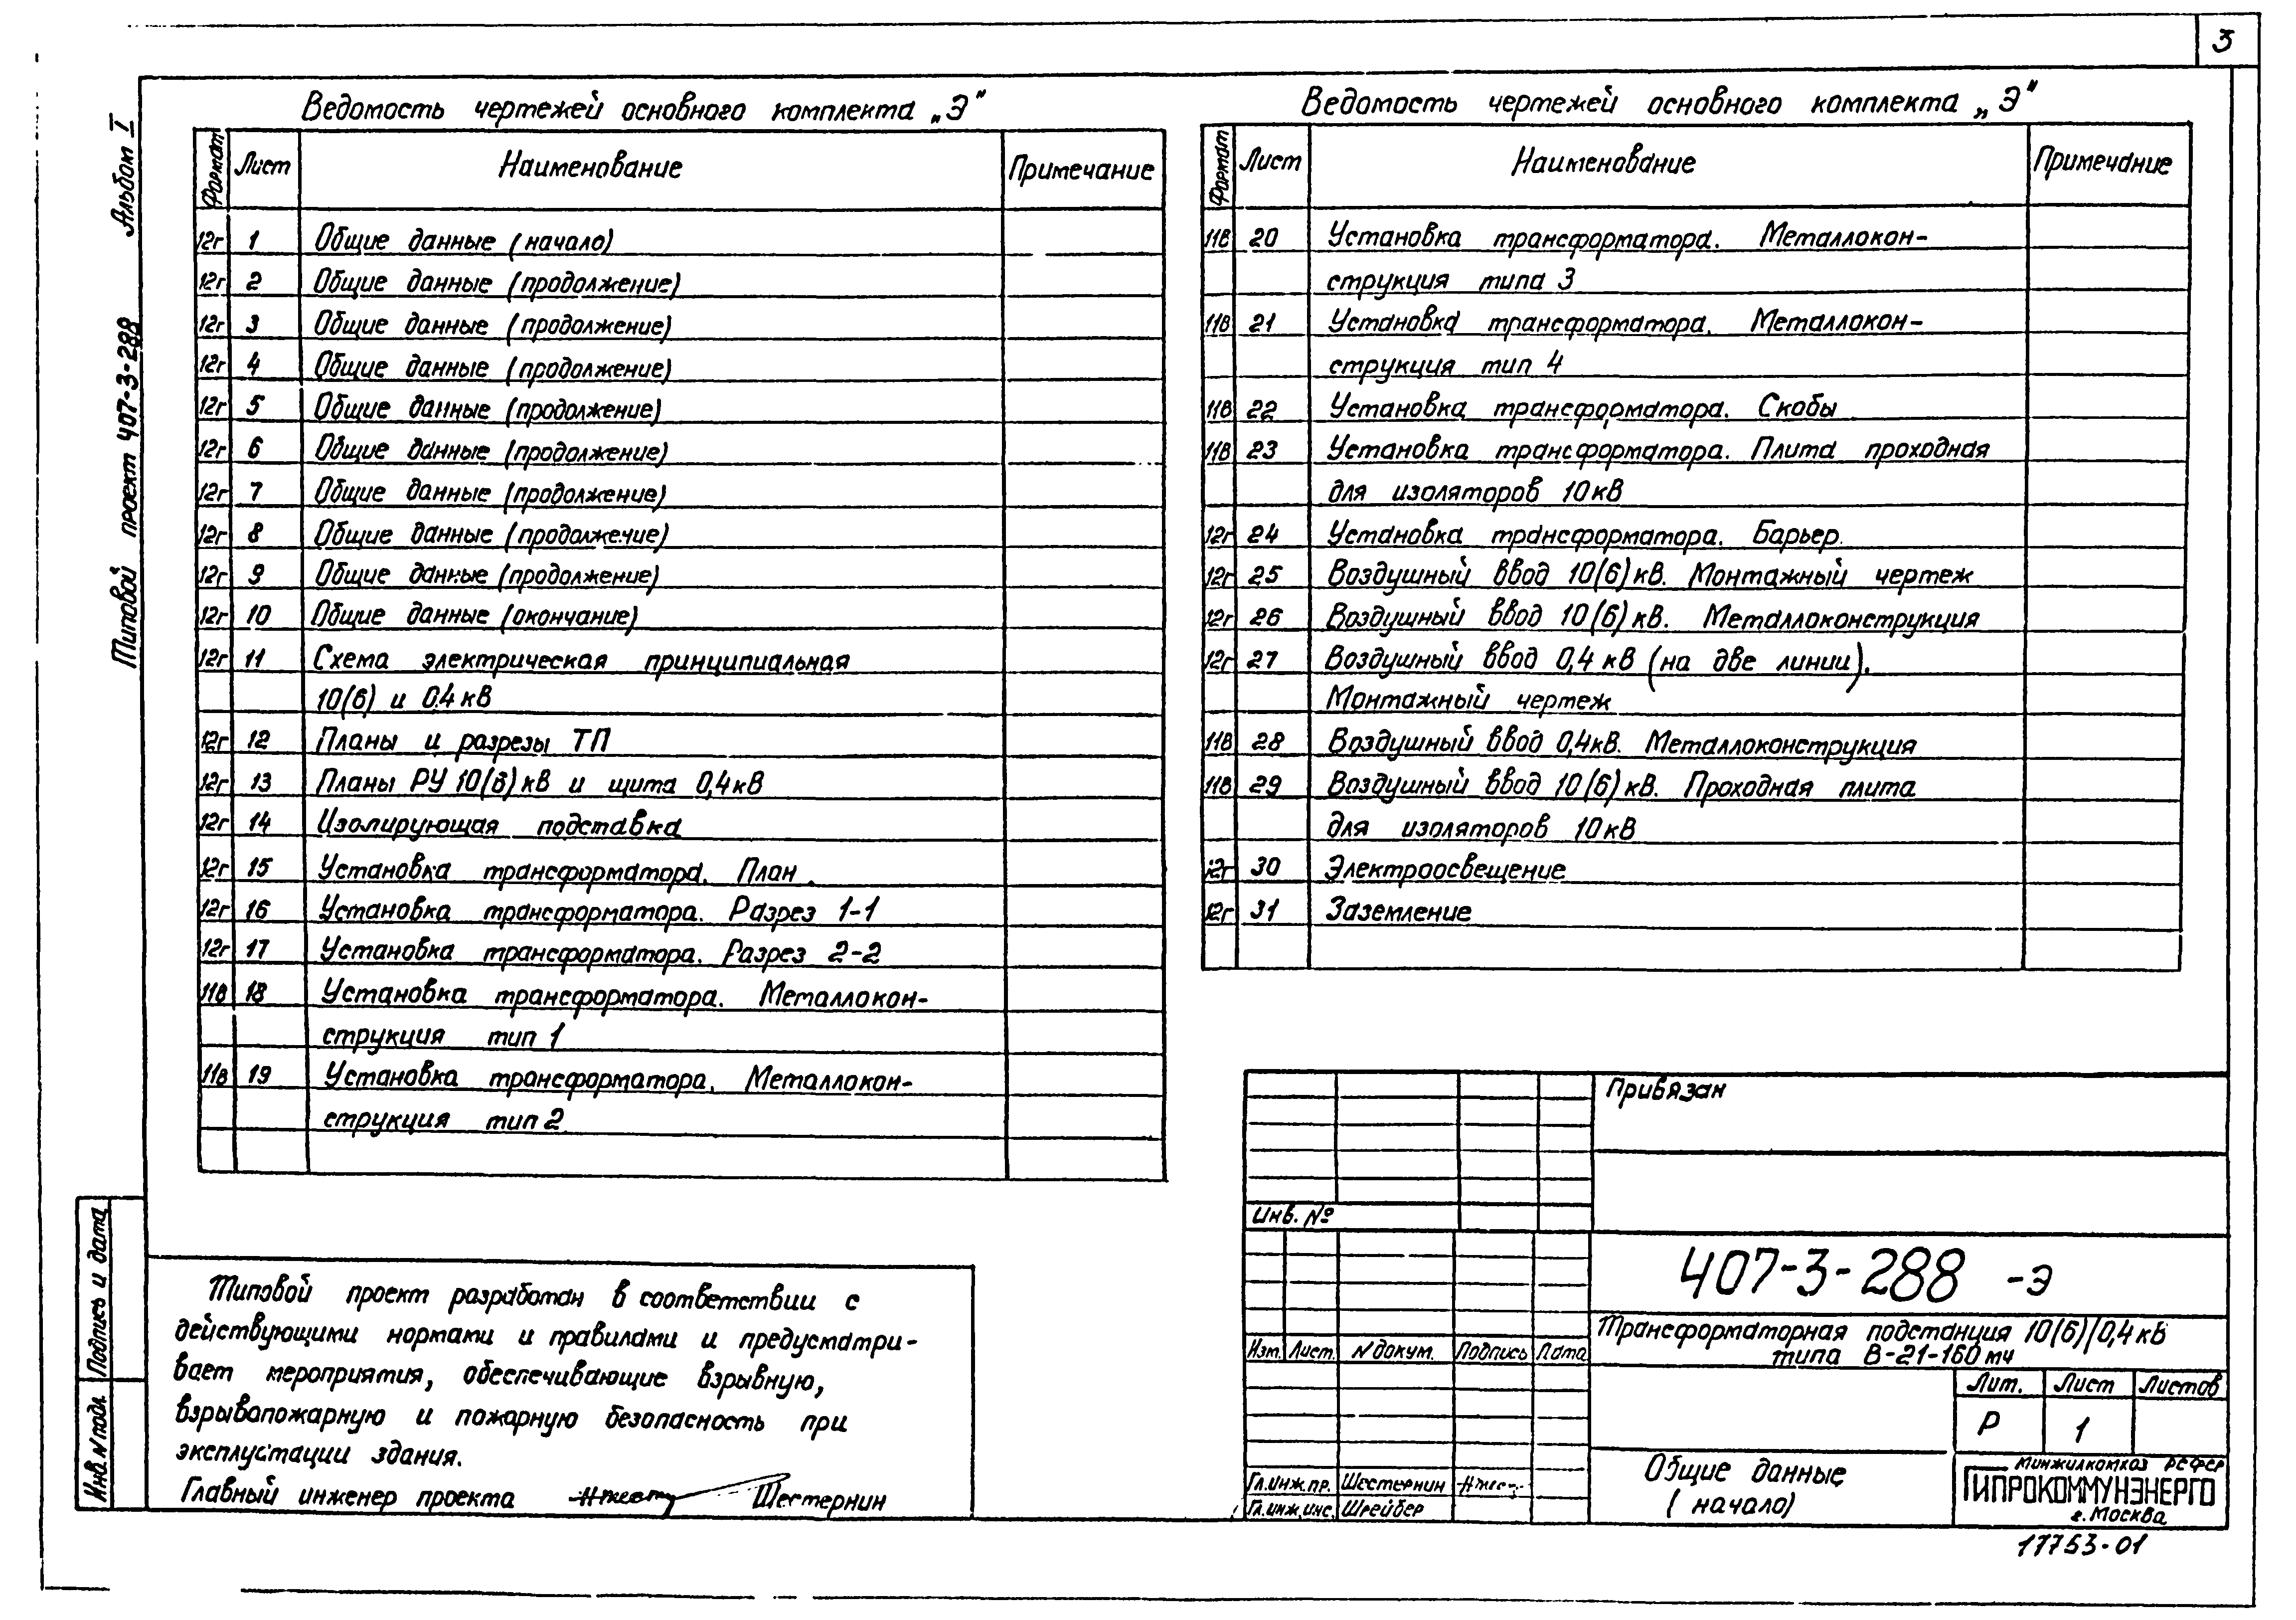 3
Типовой проект 407-3-288 Альбом I
Ведомость чертежей основного комплекта „Э"
Формат Лист Наименование Примечание
12г 1 Общие данные (начало)
12г 2 Общие данные (продолжение)
12г 3 Общие данные (продолжение)
12г 4 Общие данные (продолжение)
12г 5 Общие данные (продолжение)
12г 6 Общие данные (продолжение)
12г 7 Общие данные (продолжение)
12г 8 Общие данные (продолжение)
12г 9 Общие данные (продолжение)
12г 10 Общие данные (окончание)
12г 11 Схема электрическая принципиальная
10(6) и 0.4 кВ
12г 12 Планы и разрезы ТП
12г 13 Планы РУ 10(6) кВ и щита 0,4 кВ
12г 14 Изолирующая подставка
12г 15 Установка трансформатора. План.
12г 16 Установка трансформатора. Разрез 1-1
12г 17 Установка трансформатора. Разрез 2-2
11в 18 Установка трансформатора. Металлокон-
струкция тип 1
11в 19 Установка трансформатора. Металлокон-
струкция тип 2
Ведомость чертежей основного комплекта „Э"
Формат Лист Наименование Примечание
11в 20 Установка трансформатора. Металлокон-
струкция типа 3
11в 21 Установка трансформатора. Металлокон-
струкция тип 4
11в 22 Установка трансформатора. Скобы
11в 23 Установка трансформатора. Плита проходная
для изоляторов 10 кВ
12г 24 Установка трансформатора. Барьер.
12г 25 Воздушный ввод 10(6) кВ. Монтажный чертеж
12г 26 Воздушный ввод 10(6) кВ. Металлоконструкция
12г 27 Воздушный ввод 0,4 кВ (на две линии).
Монтажный чертеж
11в 28 Воздушный ввод 0,4кВ. Металлоконструкция
11в 29 Воздушный ввод 10(6) кВ. Проходная плита
для изоляторов 10 кВ
12г 30 Электроосвещение
12г 31 Заземление
Подпись и дата
Инв. N подл.
Типовой проект разработан в соответствии с
действующими нормами и правилами и предусматри-
вает мероприятия, обеспечивающие взрывную,
взрывопожарную и пожарную безопасность при
эксплуатации здания.
Главный инженер проекта Шестернин
Привязан
Инв. №
407-3-288 -Э
Трансформаторная подстанция 10(6)/0,4 кВ
типа В-21-160 м4
Изм. Лист. N докум. Подпись Дата
Лит. Лист Листов
Р 1
Гл.инж.пр. Шестернин
Гл.инж.инс. Шрейбер
Общие данные
(начало)
Минжилкомхоз РСФСР
ГИПРОКОММУНЭНЕРГО
г. Москва
17753-01